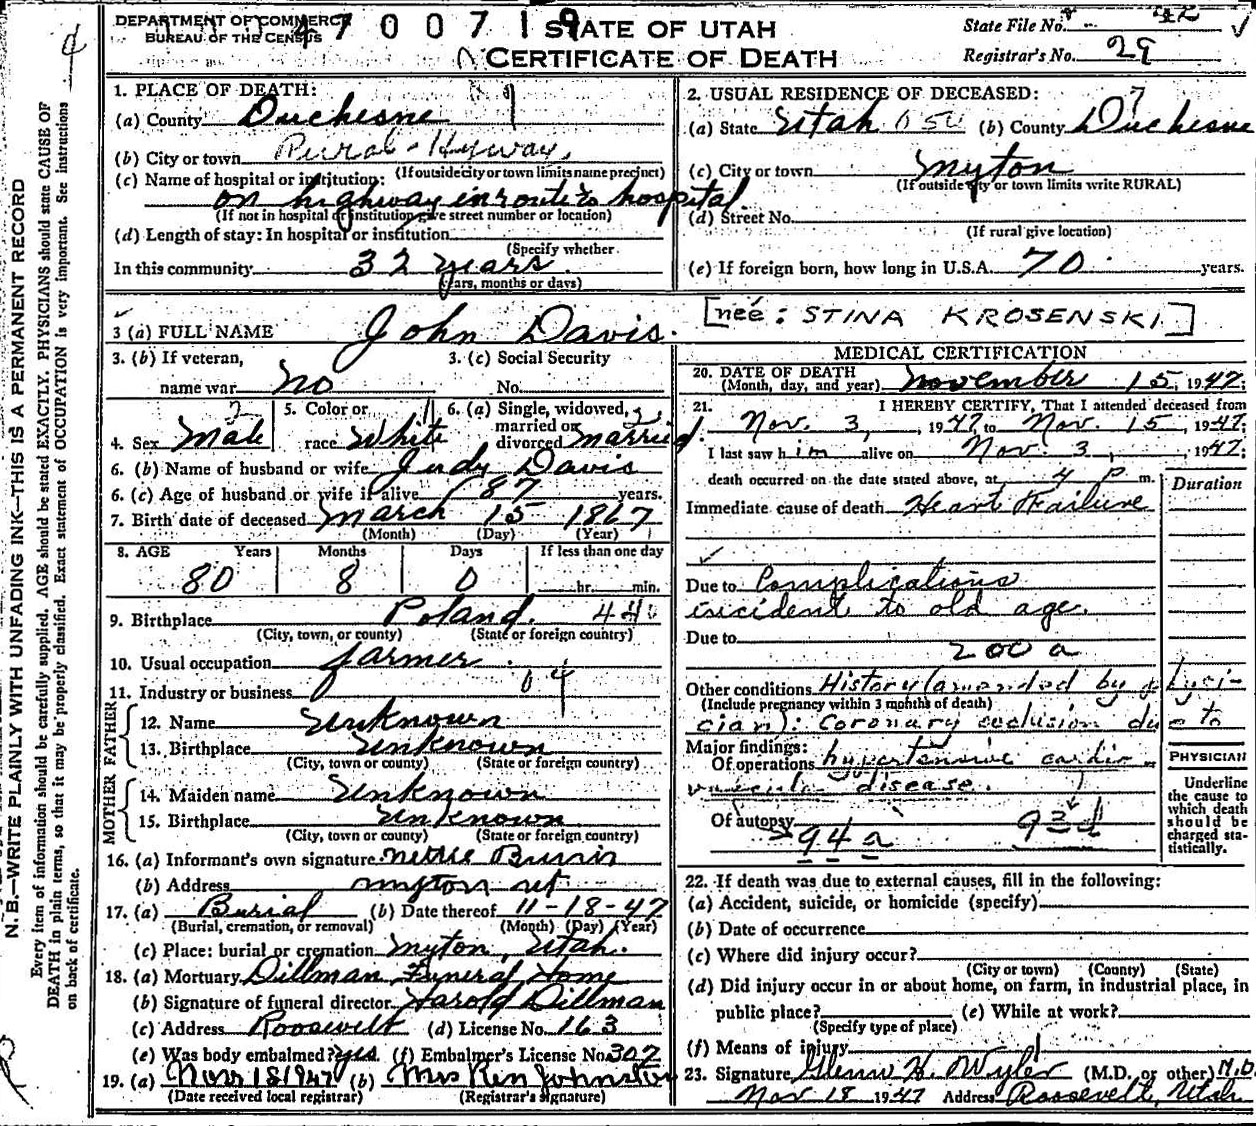 DEPARTMENT OF COMMERCE
BUREAU OF THE CENSUS
4700719
STATE OF UTAH
CERTIFICATE OF DEATH
State File No.
Registrar's No. 29
N. B.—WRITE PLAINLY WITH UNFADING INK—THIS IS A PERMANENT RECORD
Every item of information should be carefully supplied. AGE should be stated EXACTLY. PHYSICIANS should state CAUSE OF
DEATH in plain terms, so that it may be properly classified. Exact statement of OCCUPATION is very important. See instructions
on back of certificate.
1. PLACE OF DEATH:
(a) County Duchesne
(b) City or town Rural - Hyway
(If outside city or town limits name precinct)
(c) Name of hospital or institution:
on highway in route to hospital.
(If not in hospital or institution give street number or location)
(d) Length of stay: In hospital or institution
(Specify whether
In this community 32 years
years, months or days)
2. USUAL RESIDENCE OF DECEASED:
(a) State Utah (b) County Duchesne
(c) City or town Myton
(If outside city or town limits write RURAL)
(d) Street No.
(If rural give location)
(e) If foreign born, how long in U.S.A. 70 years.
3 (a) FULL NAME John Davis.
[neé: STINA KROSENSKI]
3. (b) If veteran, name war No
3. (c) Social Security No.
4. Sex Male
5. Color or race White
6. (a) Single, widowed, married or divorced married.
6. (b) Name of husband or wife Judy Davis
6. (c) Age of husband or wife if alive 87 years.
7. Birth date of deceased March 15 1867
(Month) (Day) (Year)
8. AGE Years Months Days If less than one day
80 8 0 hr. min.
9. Birthplace Poland.
(City, town, or county) (State or foreign country)
10. Usual occupation farmer
11. Industry or business
FATHER
12. Name Unknown
13. Birthplace Unknown
(City, town or county) (State or foreign country)
MOTHER
14. Maiden name Unknown
15. Birthplace Unknown
(City, town or county) (State or foreign country)
16. (a) Informant's own signature
(b) Address Myton Ut
17. (a) Burial (b) Date thereof 11-18-47
(Burial, cremation, or removal) (Month) (Day) (Year)
(c) Place: burial or cremation Myton, Utah.
18. (a) Mortuary Dillman Funeral Home
(b) Signature of funeral director Harold Dillman
(c) Address Roosevelt (d) License No. 163
(e) Was body embalmed? yes (f) Embalmer's License No. 307
19. (a) Nov 18 1947 (b) Mrs Ken Johnston
(Date received local registrar) (Registrar's signature)
MEDICAL CERTIFICATION
20. DATE OF DEATH
(Month, day, and year) November 15, 1947;
21. I HEREBY CERTIFY, That I attended deceased from
Nov. 3, 1947 to Nov. 15, 1947;
I last saw him alive on Nov. 3, 1947;
death occurred on the date stated above, at 4 P m.
Duration
Immediate cause of death Heart Failure
Due to Complications
incident to old age.
Due to
200 a
Other conditions History (amended by physi-
(Include pregnancy within 3 months of death)
cian): Coronary occlusion due to
Major findings:
Of operations hypertensive cardio-
vascular disease.
Of autopsy
94a 93d
PHYSICIAN
Underline
the cause to
which death
should be
charged sta-
tistically.
22. If death was due to external causes, fill in the following:
(a) Accident, suicide, or homicide (specify)
(b) Date of occurrence
(c) Where did injury occur?
(City or town) (County) (State)
(d) Did injury occur in or about home, on farm, in industrial place, in
public place? (e) While at work?
(Specify type of place)
(f) Means of injury
23. Signature Glenn H. Wyler (M.D. or other) M.D.
Nov 18 1947 Address Roosevelt, Utah